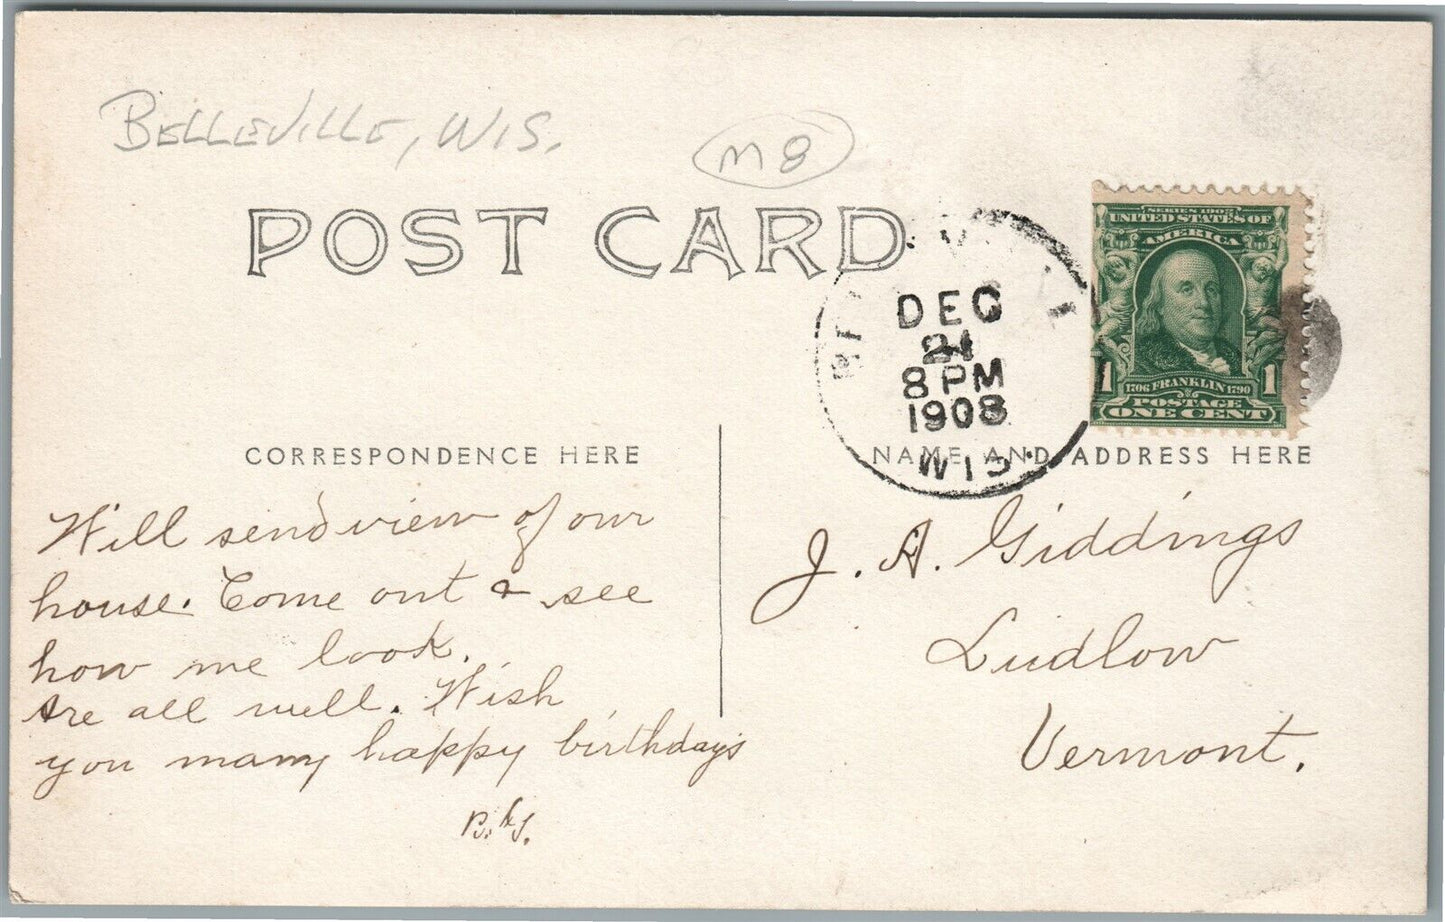 BELLEVILLE, WIS.
M8
POST CARD
DEC
21
8 PM
1908
WIS.
SERIES 1902
UNITED STATES OF
AMERICA
1706 FRANKLIN 1790
1 1
POSTAGE
ONE CENT
CORRESPONDENCE HERE
NAME AND ADDRESS HERE
Will send view of our
house. Come out & see
how we look.
Are all well. Wish
you many happy birthdays
J. A. Giddings
Ludlow
Vermont.